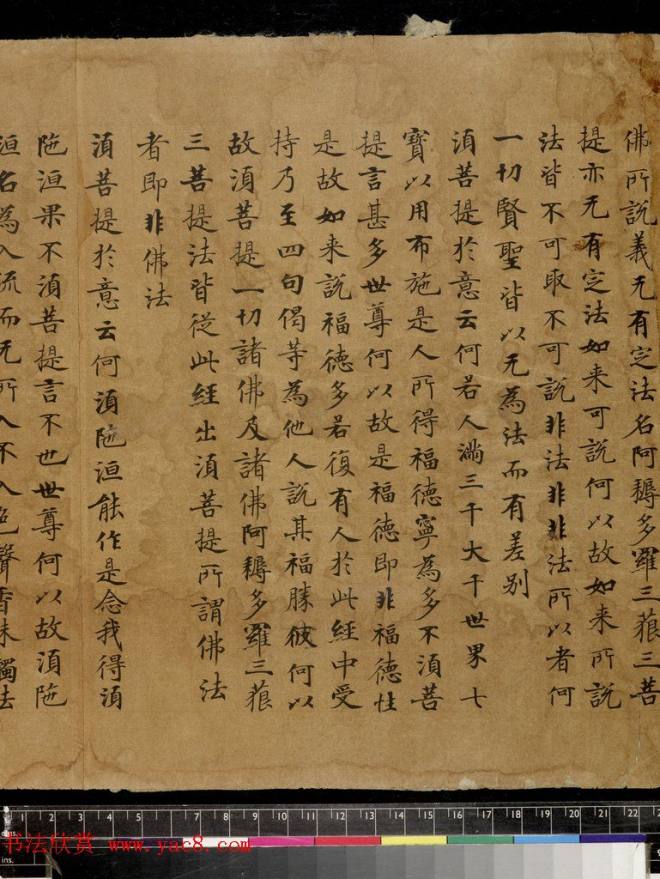 佛所說義无有定法名阿耨多羅三藐三菩
提亦无有定法如来可說何以故如来所說
法皆不可取不可說非法非非法所以者何
一切賢聖皆以无為法而有差别
湏菩提於意云何若人滿三千大千世界七
寶以用布施是人所得福德寧為多不湏菩
提言甚多世尊何以故是福德即非福德性
是故如来說福德多若復有人於此經中受
持乃至四句偈等為他人說其福勝彼何以
故湏菩提一切諸佛及諸佛阿耨多羅三藐
三菩提法皆從此經出湏菩提所謂佛法
者即非佛法
湏菩提於意云何湏陁洹能作是念我得湏
陁洹果不湏菩提言不也世尊何以故湏陁
洹名為入流而无所入不入色聲香味觸法
1 2 3 4 5 6 7 8 9 10 11 12 13 14 15 16 17 18 19 20 21 22
cms.
ins.
书法欣赏 www.yac8.com